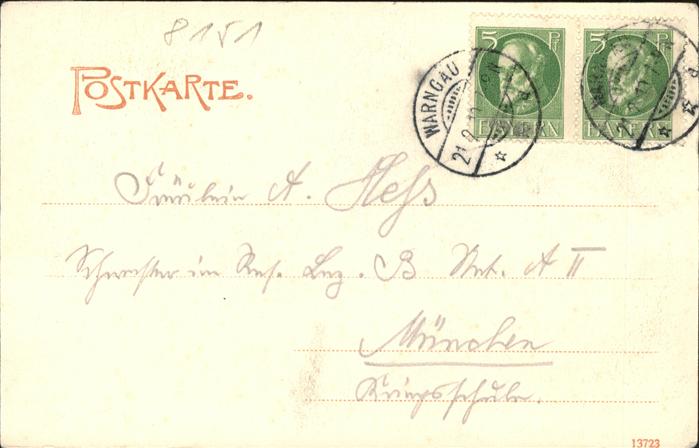 8151
POSTKARTE.
5 Pf 5 Pf
BAYERN BAYERN
WARNGAU
21.9.
Fräulein A. Heß
Schwester im Res. Laz. B Abt. A II
München
Kriegsschule.
13723